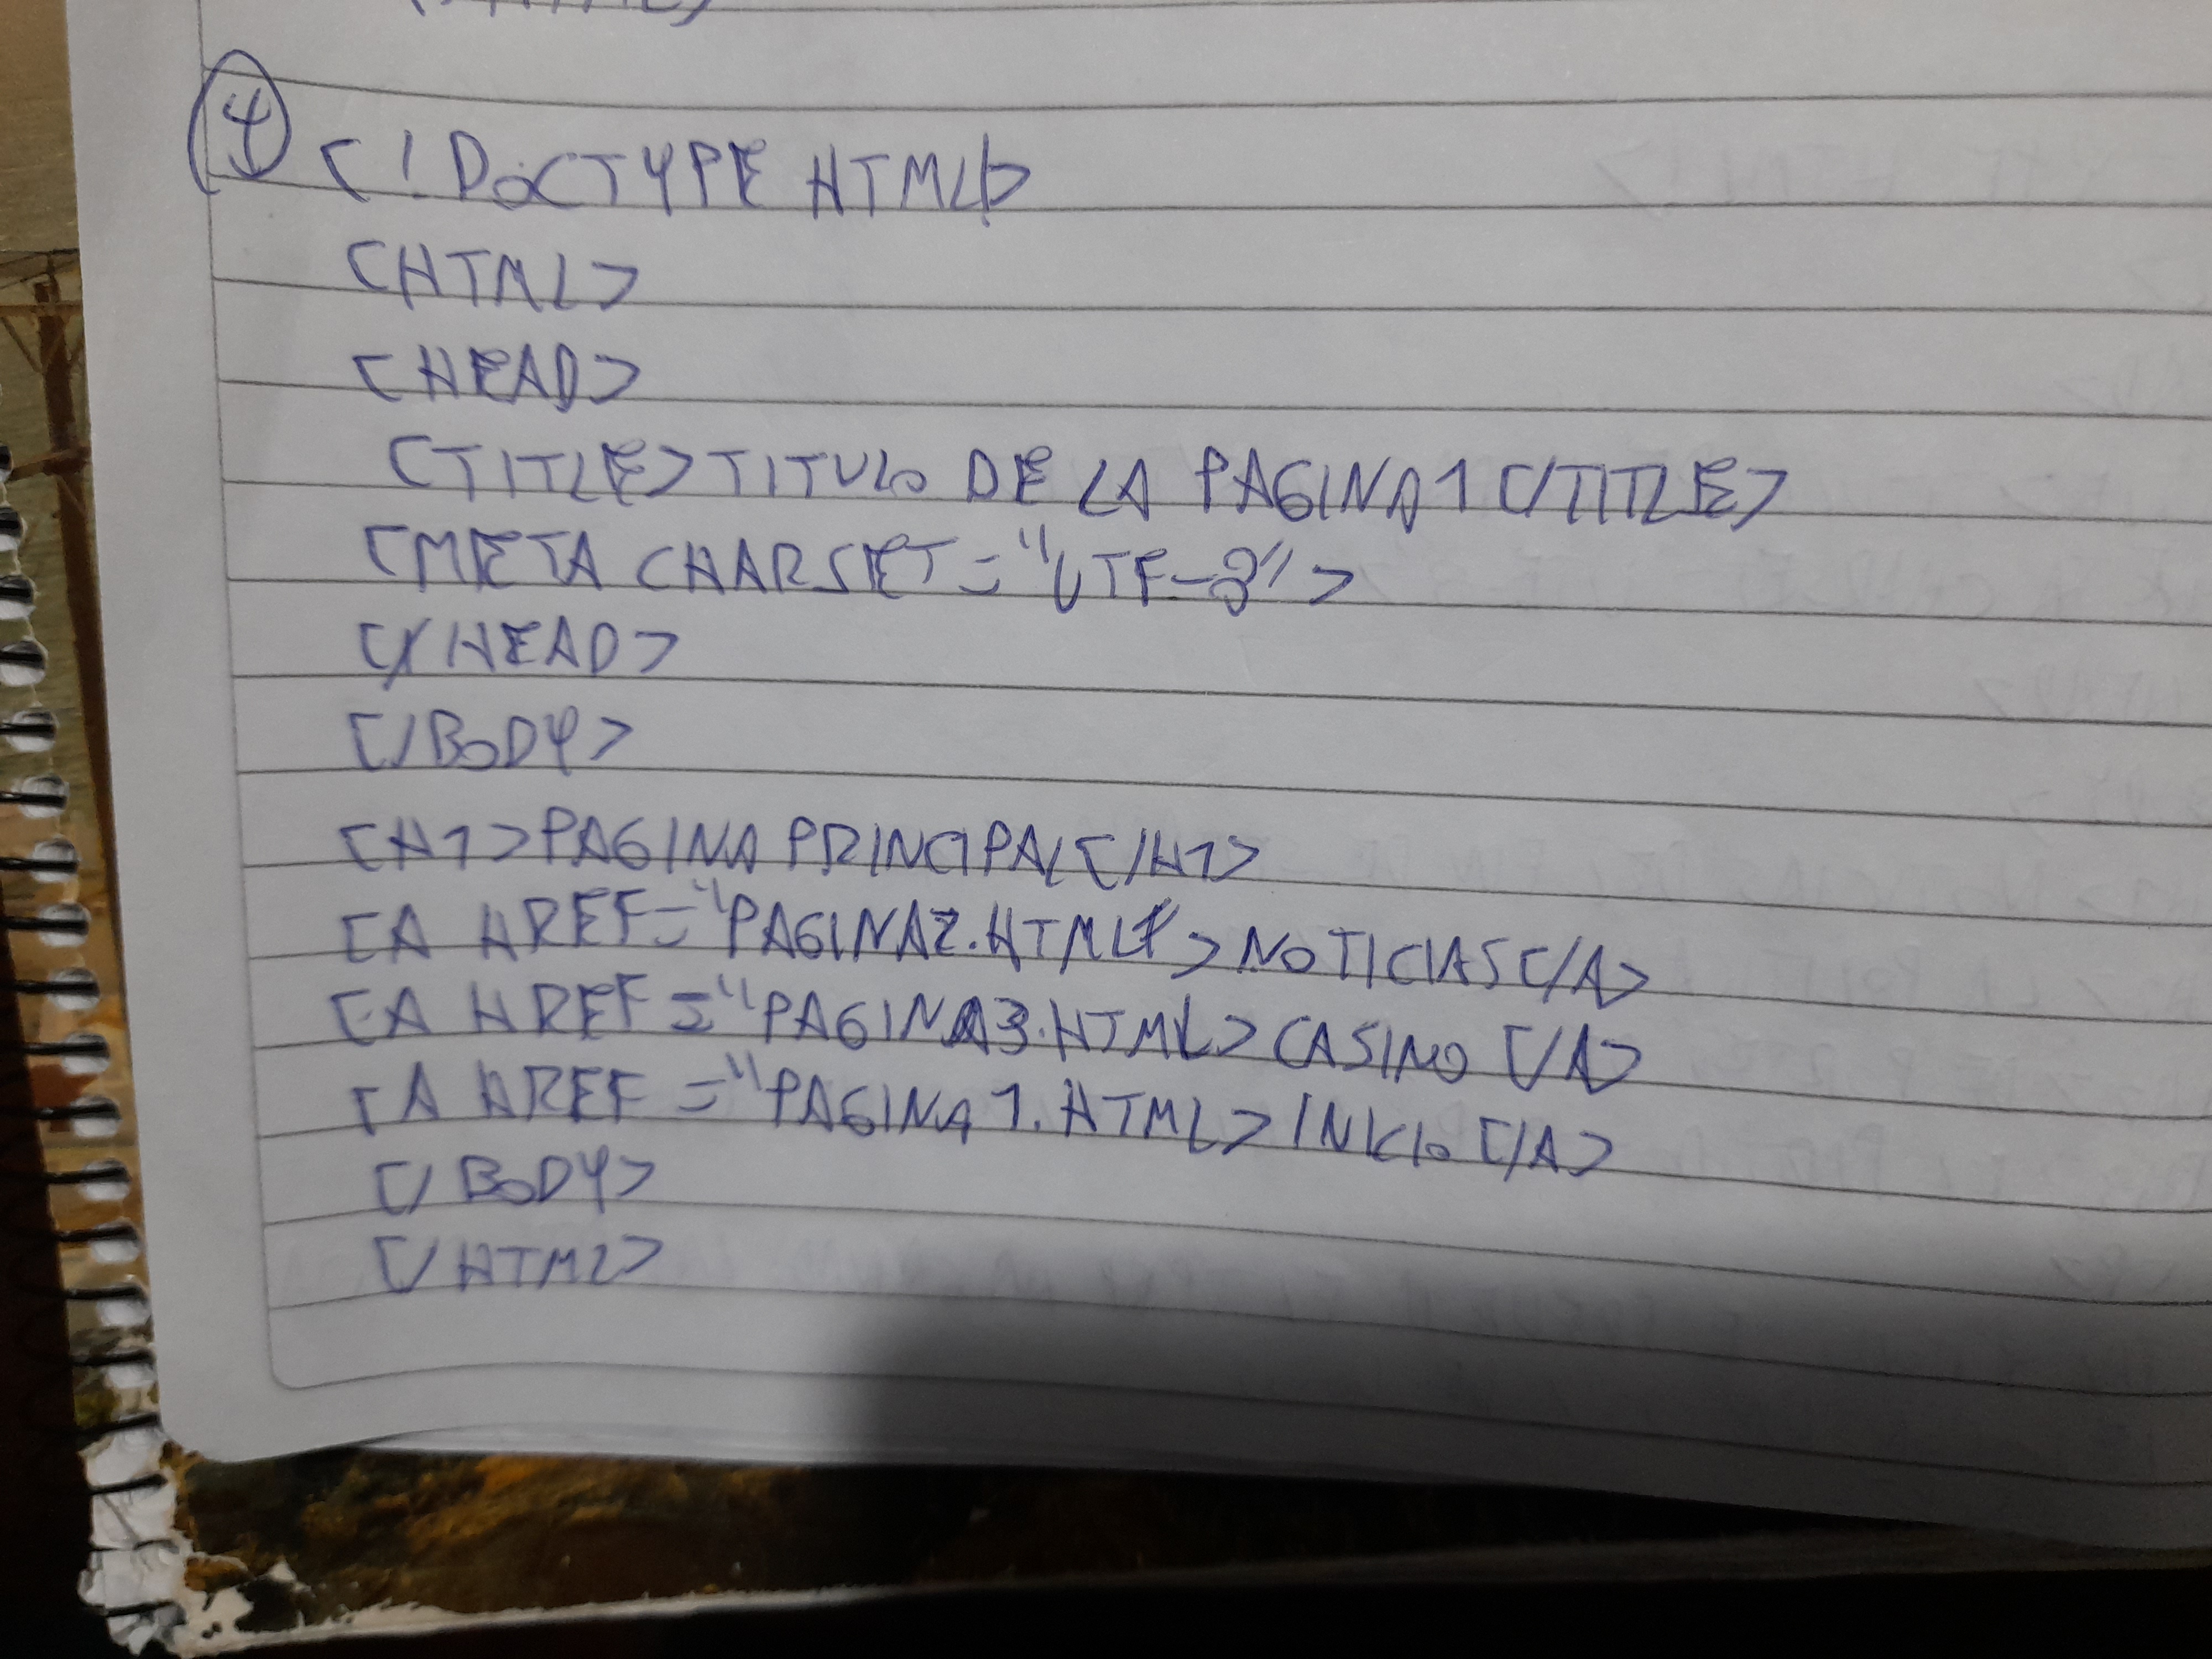 4 <!DOCTYPE HTML>
<HTML>
<HEAD>
<TITLE>TITULO DE LA PAGINA 1</TITLE>
<META CHARSET="UTF-8">
</HEAD>
</BODY>
<H1>PAGINA PRINCIPAL</H1>
<A HREF="PAGINA2.HTML">NOTICIAS</A>
<A HREF="PAGINA3.HTML>CASINO</A>
<A HREF="PAGINA1.HTML>INICIO</A>
</BODY>
</HTML>